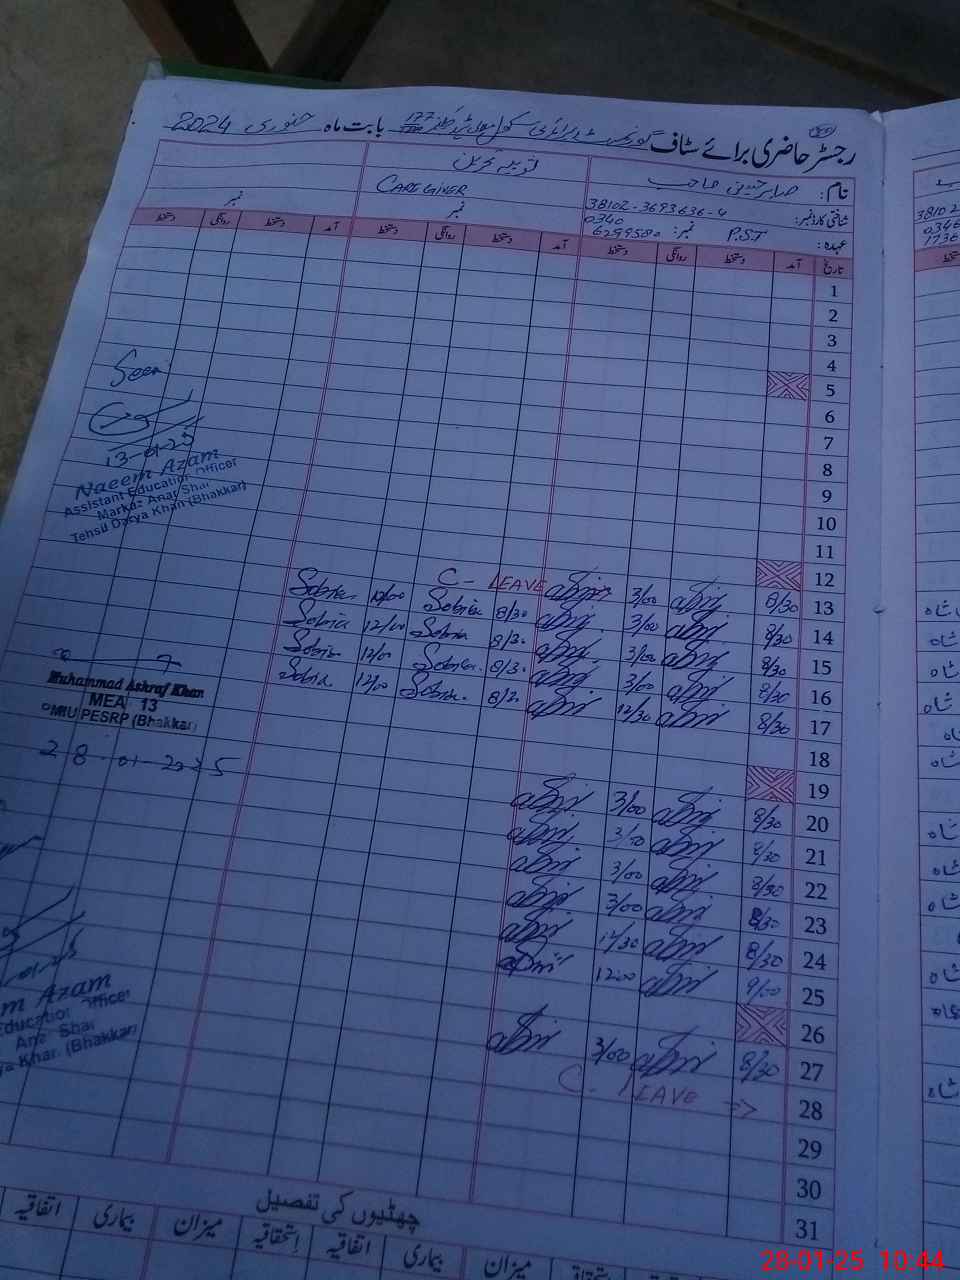 رجسٹر حاضری برائے سٹاف گورنمنٹ پرائمری سکول بابت ماہ جنوری 2024
نام: صابر حسین صاحب
CAREGIVER
شناختی کارڈ نمبر: 38102-3693636-4
عہدہ: P.S.T نمبر: 0340
6299580
نمبر
نمبر
تاریخ آمد دستخط روانگی دستخط آمد دستخط روانگی دستخط آمد دستخط روانگی دستخط
1
2
3
4
5
6
7
8
9
10
11
12
13 8/30 3/00 C- LEAVE
14 8/30 3/00 8/30 Sobia 12/00 Sobia
15 8/30 3/00 8/30 Sobia 12/00 Sobia
16 8/30 3/00 8/30 Sobia 12/00 Sobia
17 8/30 12/30 8/30 Sobia 12/00 Sobia
18
19
20 8/30 3/00
21 8/30 3/00
22 8/30 3/00
23 8/30 3/00
24 8/30 12/30
25 9/00 12:00
26
27 8/30 3/00
28 C- LEAVE =>
29
30
31
Seen
13-01-25
Naeem Azam
Assistant Education Officer
Markaz Anar Shai
Tehsil Darya Khan (Bhakkar)
Muhammad Ashraf Khan
MEA 13
MIU PESRP (Bhakkar)
28-01-2025
m Azam
Education Officer
Ana Shai
ya Khan (Bhakkar)
چھٹیوں کی تفصیل
میزان بیماری اتفاقیہ استحقاقیہ میزان بیماری اتفاقیہ
38102
0346
1736
28-01-25 10:44